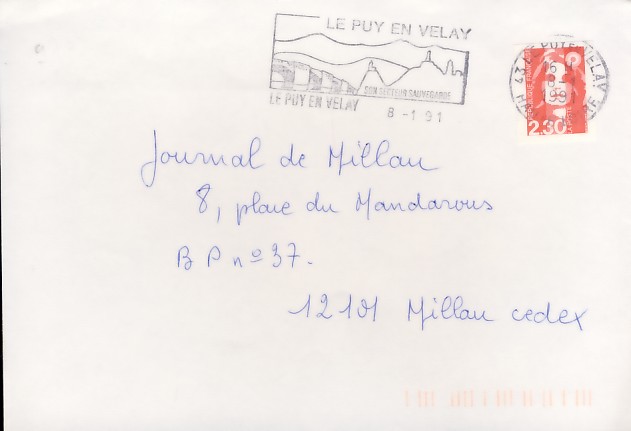 LE PUY EN VELAY
SON SECTEUR SAUVEGARDE
LE PUY EN VELAY
8 -1 91
43 LE PUY EN VELAY
16 H
8 - 1
1991
HAUTE LOIRE
2,30
Journal de Millau
8, place du Mandarous
B P nº 37.
12101 Millau cedex